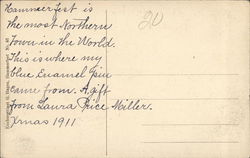 Hammerfest is
the most Northern
Town in the World.
This is where my
blue Enamel Pin
came from. A gift
from Laura Price Miller.
Xmas 1911
20